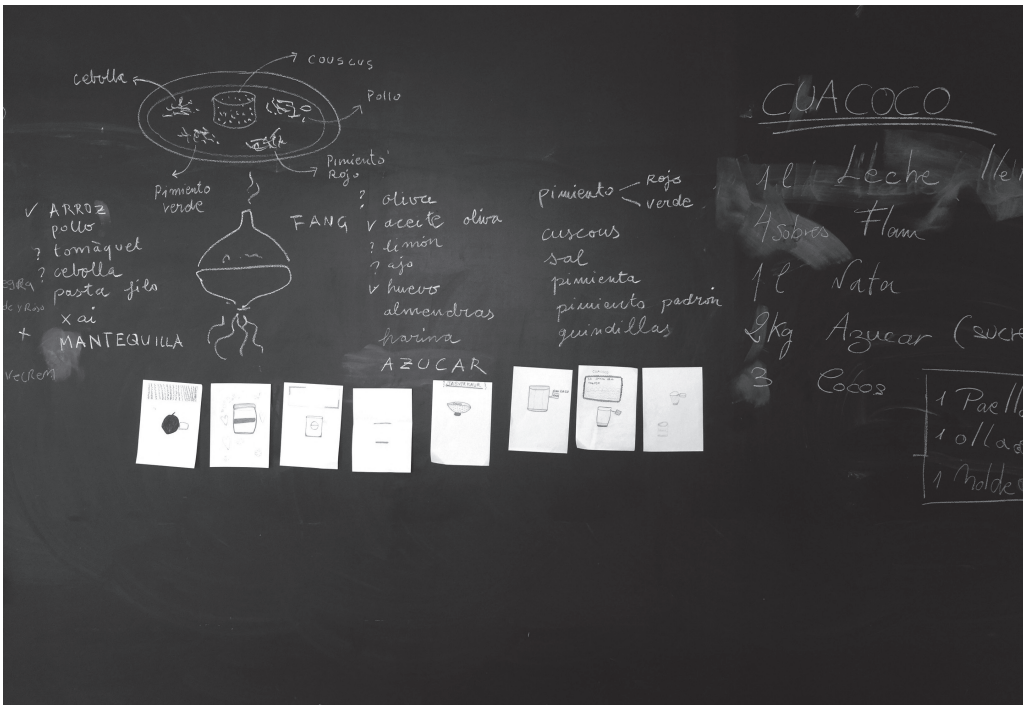 couscus
cebolla
Pollo
Pimiento Rojo
Pimiento verde
✓ ARROZ
pollo
? tomàquet
? cebolla
pasta filo
xai
x MANTEQUILLA
FANG
? oliva
v aceite oliva
? limón
? ajo
v huevo
almendras
harina
AZUCAR
pimiento Rojo
verde
cuscous
sal
pimienta
pimiento padrón
guindillas
CUACOCO
1 l Leche
4 sobres Flam
1 l Nata
2kg Azucar (sucre
3 Cocos
1 Paella
1 olla
1 Molde